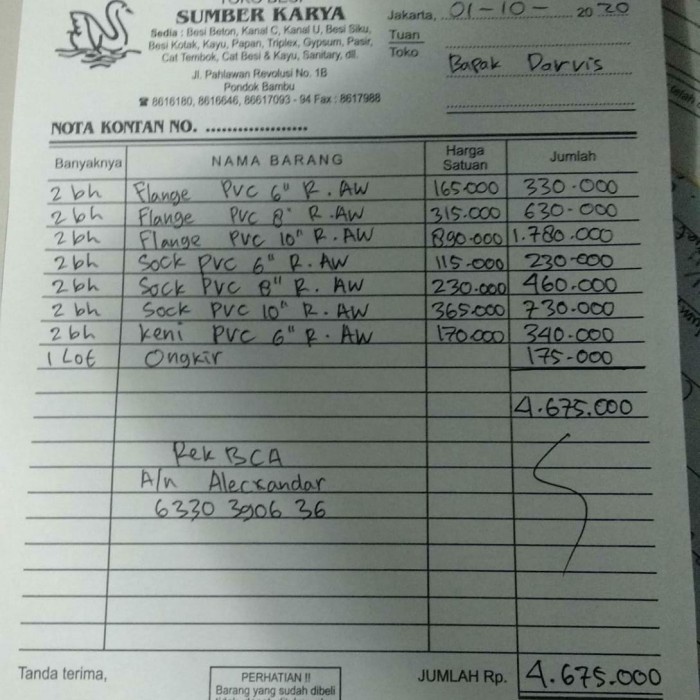 TOKO BESI
SUMBER KARYA
Sedia : Besi Beton, Kanal C, Kanal U, Besi Siku,
Besi Kotak, Kayu, Papan, Triplex, Gypsum, Pasir,
Cat Tembok, Cat Besi & Kayu, Sanitary, dll.
Jl. Pahlawan Revolusi No. 1B
Pondok Bambu
☎ 8616180, 8616646, 86617093 - 94 Fax : 8617988
Jakarta, 01-10- 2020
Tuan
Toko
Bapak Darvis
NOTA KONTAN NO. ...................
Banyaknya NAMA BARANG Harga Satuan Jumlah
2 bh Flange PVC 6" R. AW 165.000 330.000
2 bh Flange PVC 8" R. AW 315.000 630.000
2 bh Flange PVC 10" R. AW 890.000 1.780.000
2 bh Sock PVC 6" R. AW 115.000 230.000
2 bh Sock PVC 8" R. AW 230.000 460.000
2 bh Sock PVC 10" R. AW 365.000 730.000
2 bh keni PVC 6" R. AW 170.000 340.000
1 Lot Ongkir 175.000
4.675.000
Rek BCA
A/n Alecxandar
6330 3906 36
Tanda terima,
PERHATIAN !!
Barang yang sudah dibeli
JUMLAH Rp. 4.675.000